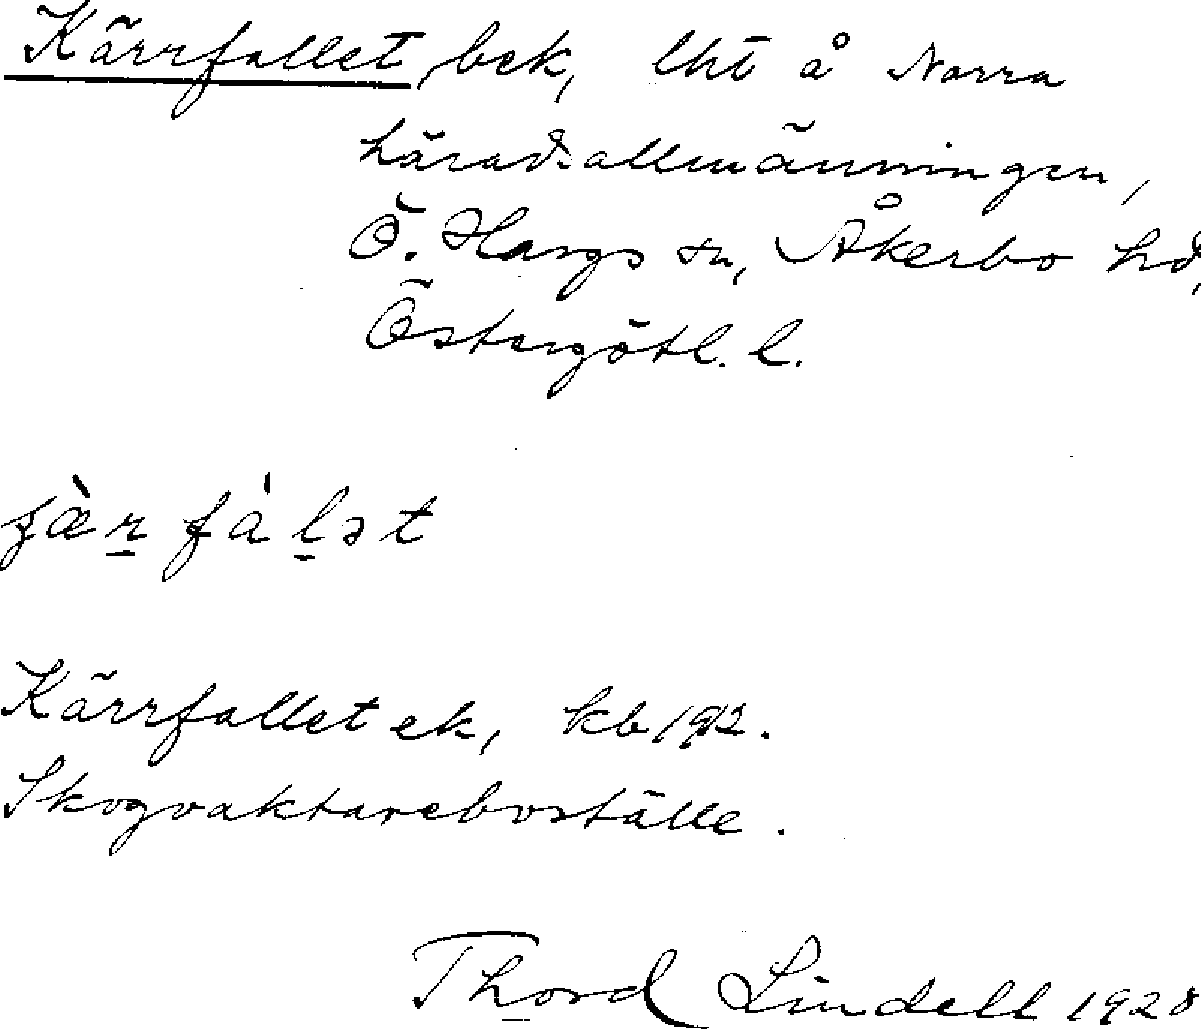 Kärrfallet, bek, lht å Norra
häradsallmänningen,
Ö. Hargs sn, Åkerbo hd,
Östergötl. l.
fàlət
Kärrfallet ek, kb 1912.
Skogvaktareboställe.
Thord Lindell 1928